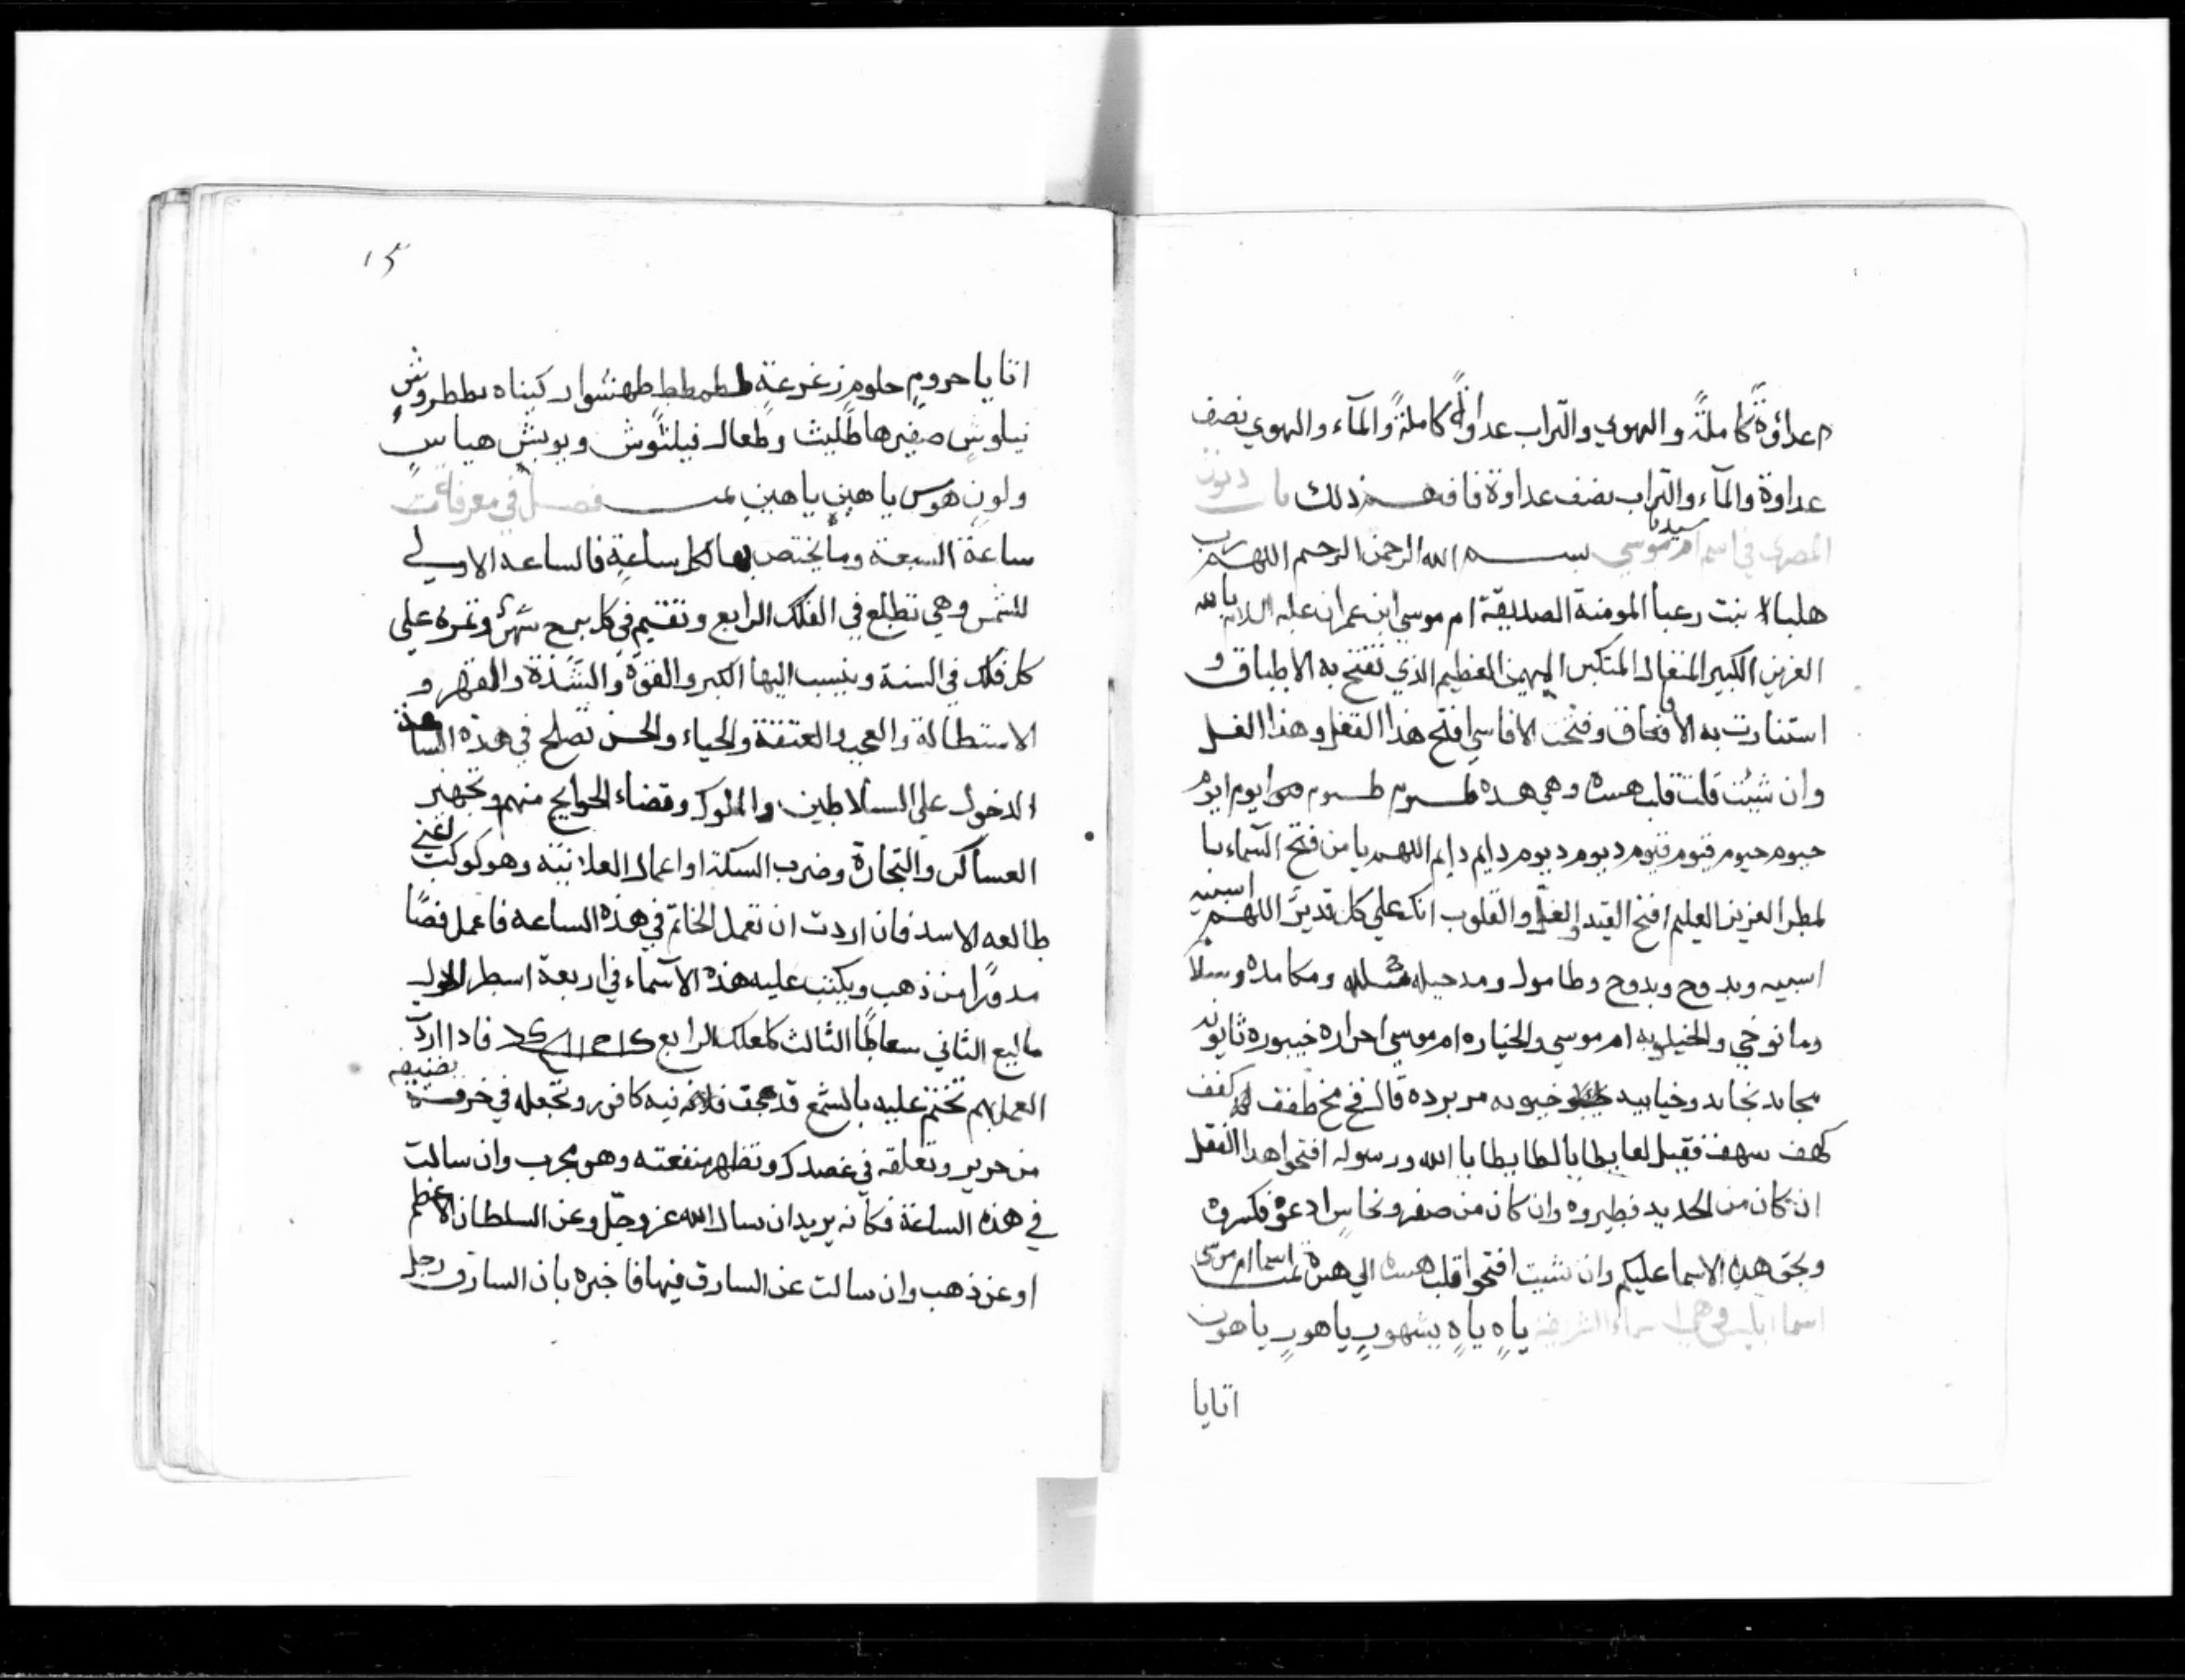 عداوة كاملة والهوي والتراب عداوة كاملة والمآء والهوي نصف
عداوة والمآء والتراب نصف عداوة فافهم ذلك باب دنون
المصري في اسم ام سيدنا موسي بسم الله الرحمن الرحيم اللهم رب
هلبا بنت رعبا المومنة الصديقة ام موسي ابن عمران عليه السلام يا الله
العزيز الكبير المتعال المتكبر المهيمن العظيم الذي تفتح به الاطباق و
استنارت به الافاق وفتحت الاقاسي افتح هذا القفل وهذا الغل
وان شيئت قلت قلب هسة وهي هده طسوم طسوم ايوم ايوم
حيوم حيوم قيوم قيوم ديوم ديوم دايم دايم اللهم يا من فتح السماء با
لمطر العزيز العليم افتح القيد والغل والقلوب انك علي كل قدير اللهم اسميه
اسميه وبدوح وبدوح وطامول ومدحيله ومكامده وسلا
وما نوخي والخيلوبه ام موسي والخياره ام موسي احراره خيبوره ثابوند
مجاند نجاند وخيابيد خيبوبه مر برده قال فخ مخ طفف كفف
كهف سهف فقيل لعابطا بالطابطا يا الله ورسوله افتحوا هدا القفل
ان كان من الحديد فطيروه وان كان من صفر ونحاس ادعوه فكسروه
وبحق هده الاسما عليكم وان شيت افتحوا قلب هسة الي هسة تمت اسما ام موسي
اسما وهي اسماء الشريفة ياه ياه بشهوب يا هور يا هون
اتايا
١٥
اتايا حروم حلوم زغرغة ططمططط طهنشوار كيناه بططروش
نيلوش صفير هاطليث وطعال فيلنوش وبوبش هياس
ولون هوس يا هين يا هين تمت فصل في معرفات
ساعة السبعة وما يختص بها لكل ساعة فالساعه الاولي
للشمس وهي تطلع في الفلك الرابع وتقيم في كل برج شهر وتمره علي
كل فلك في السنة وينسب اليها الكبر والقوة والشدة والقهر و
الاستطالة والعجب والعتقة والحياء والحسن تصلح في هذه الساعة
الدخول علي السلاطين والملوك وقضاء الحوايج منهم وتجهيز
العساكر والتجارة وضرب السكة او اعمال العلانية وهو كوكب لغني
طالعه الاسد فان اردت ان تعمل الخاتم في هذه الساعه فاعمل فصًا
مدورًا من ذهب ويكتب عليه هذه الاسماء في اربعة اسطر الاول
ماليع الثاني سعاطا الثالث كلمعلك الرابع فادا اردت
العمل بهم تختم عليه بالشمع قد عجنت فلاته فيه كافور وتجعله في خرقة نضيفه
من حرير وتعلقه في عضدك وتظهر منفعته وهو مجرب وان سالت
في هذه الساعة فكانه يريد ان يسال الله عز وجل وعن السلطان الاعظم
او عن ذهب وان سالت عن السارق فيها فاخبره بان السارق رجل